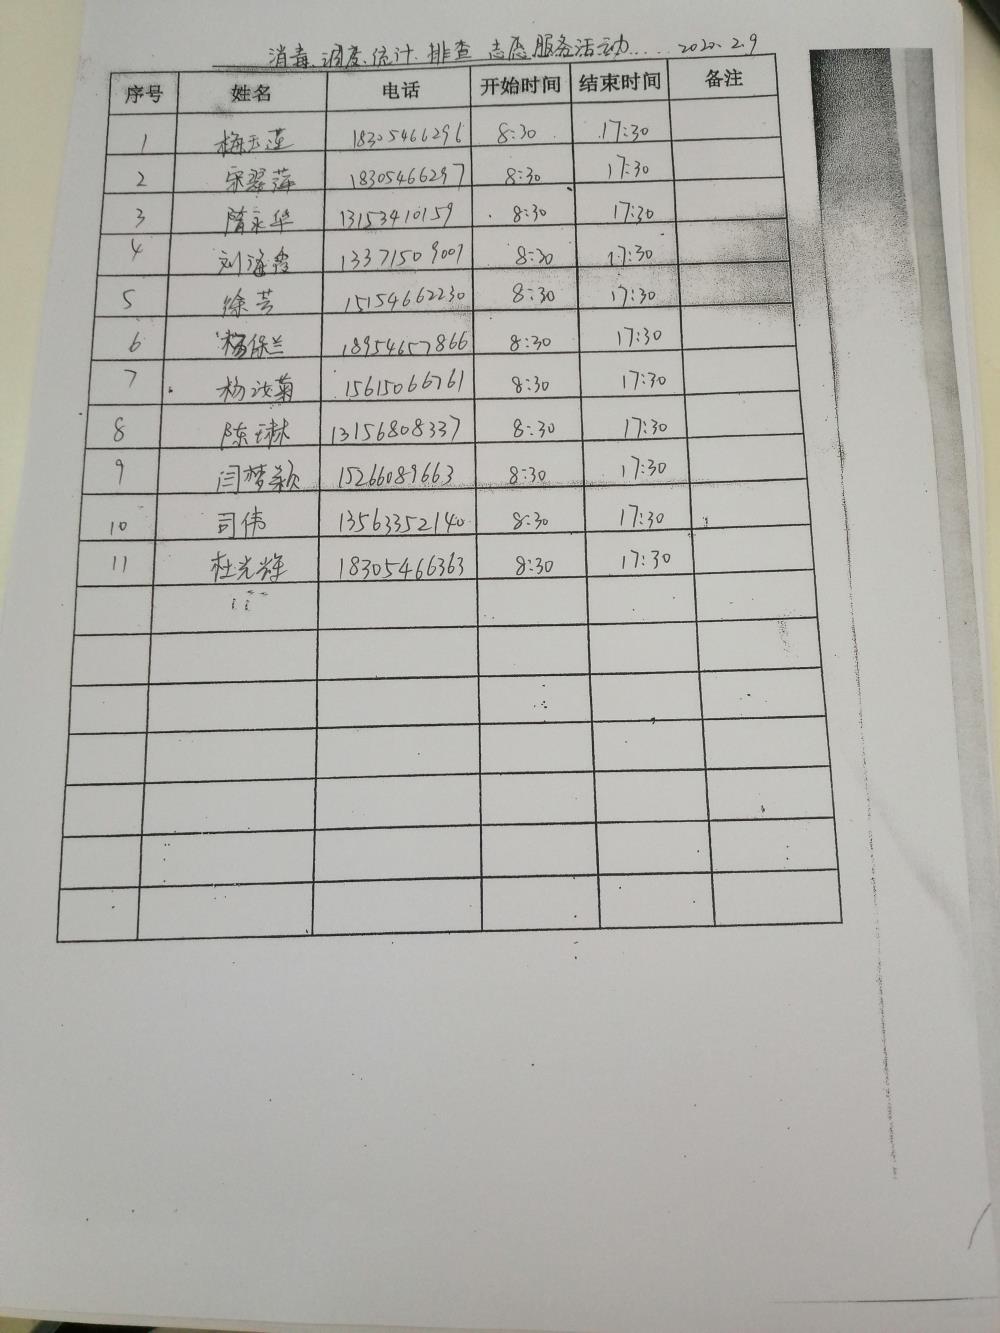 消毒、调度、统计、排查 志愿服务活动..... 2020.2.9
序号 姓名 电话 开始时间 结束时间 备注
1 梅玉莲 18305466296 8:30 17:30
2 宋翠萍 18305466297 8:30 17:30
3 隋永华 13153410159 8:30 17:30
4 刘海霞 13371509007 8:30 17:30
5 徐芸 15154662230 8:30 17:30
6 杨保兰 18954657866 8:30 17:30
7 杨汝菊 15615066761 8:30 17:30
8 陈琳 13156808337 8:30 17:30
9 闫梦颖 15266089663 8:30 17:30
10 司伟 13563352140 8:30 17:30
11 杜光辉 18305466363 8:30 17:30